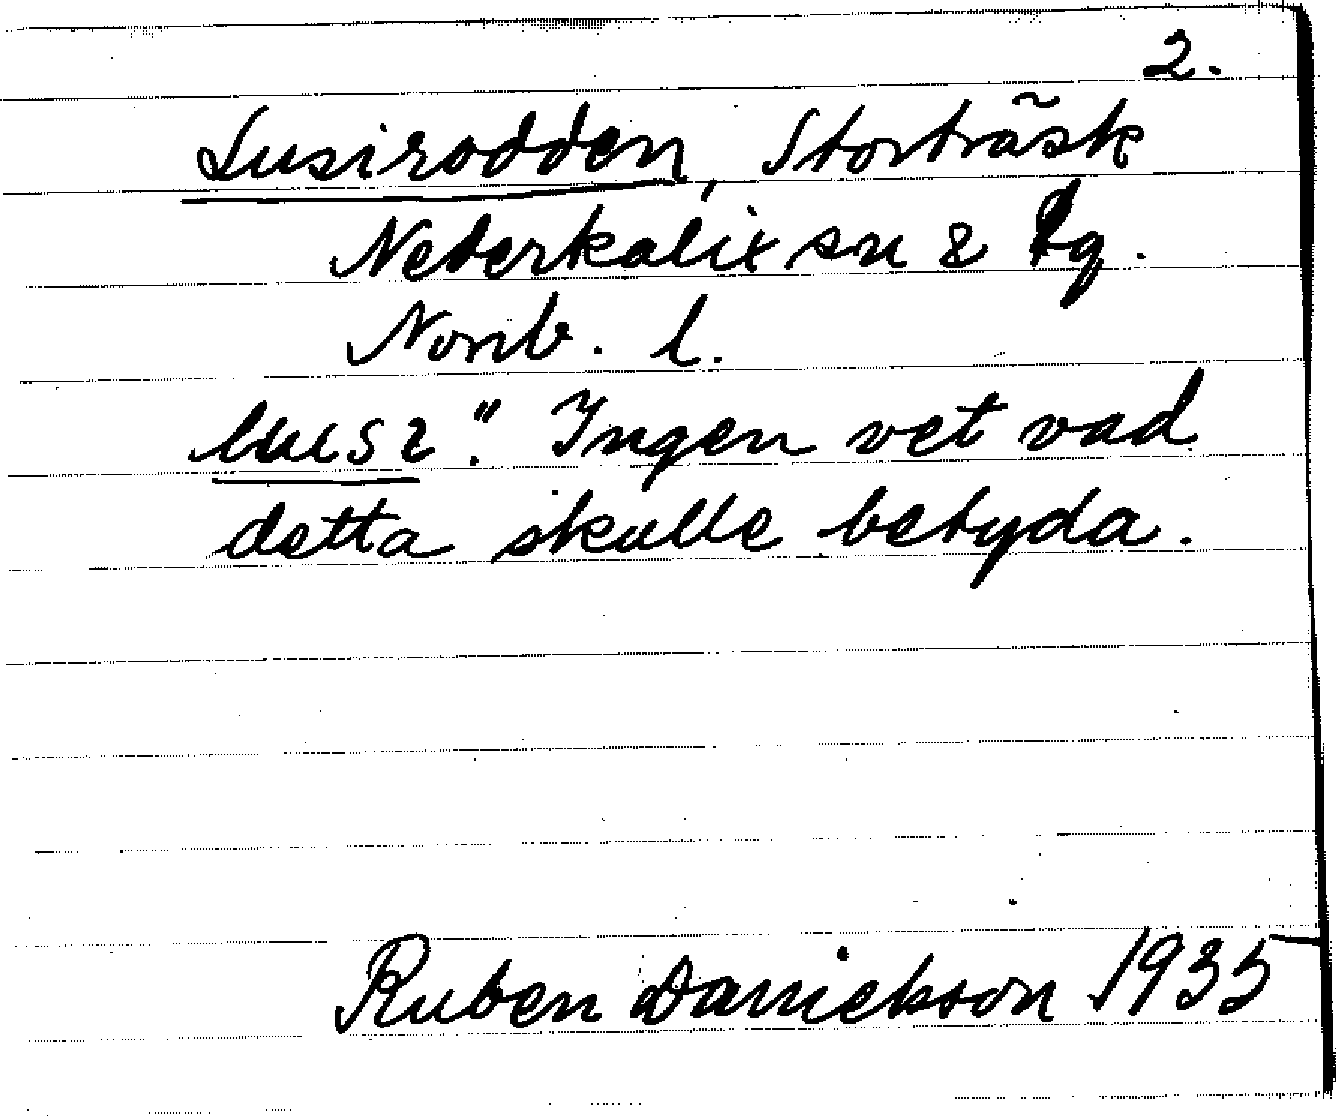 2.
Lusirodden, Storträsk
Nederkalix sn & tg.
Norrb. l.
lusı". Ingen vet vad
detta skulle betyda.
Ruben Danielsson 1935